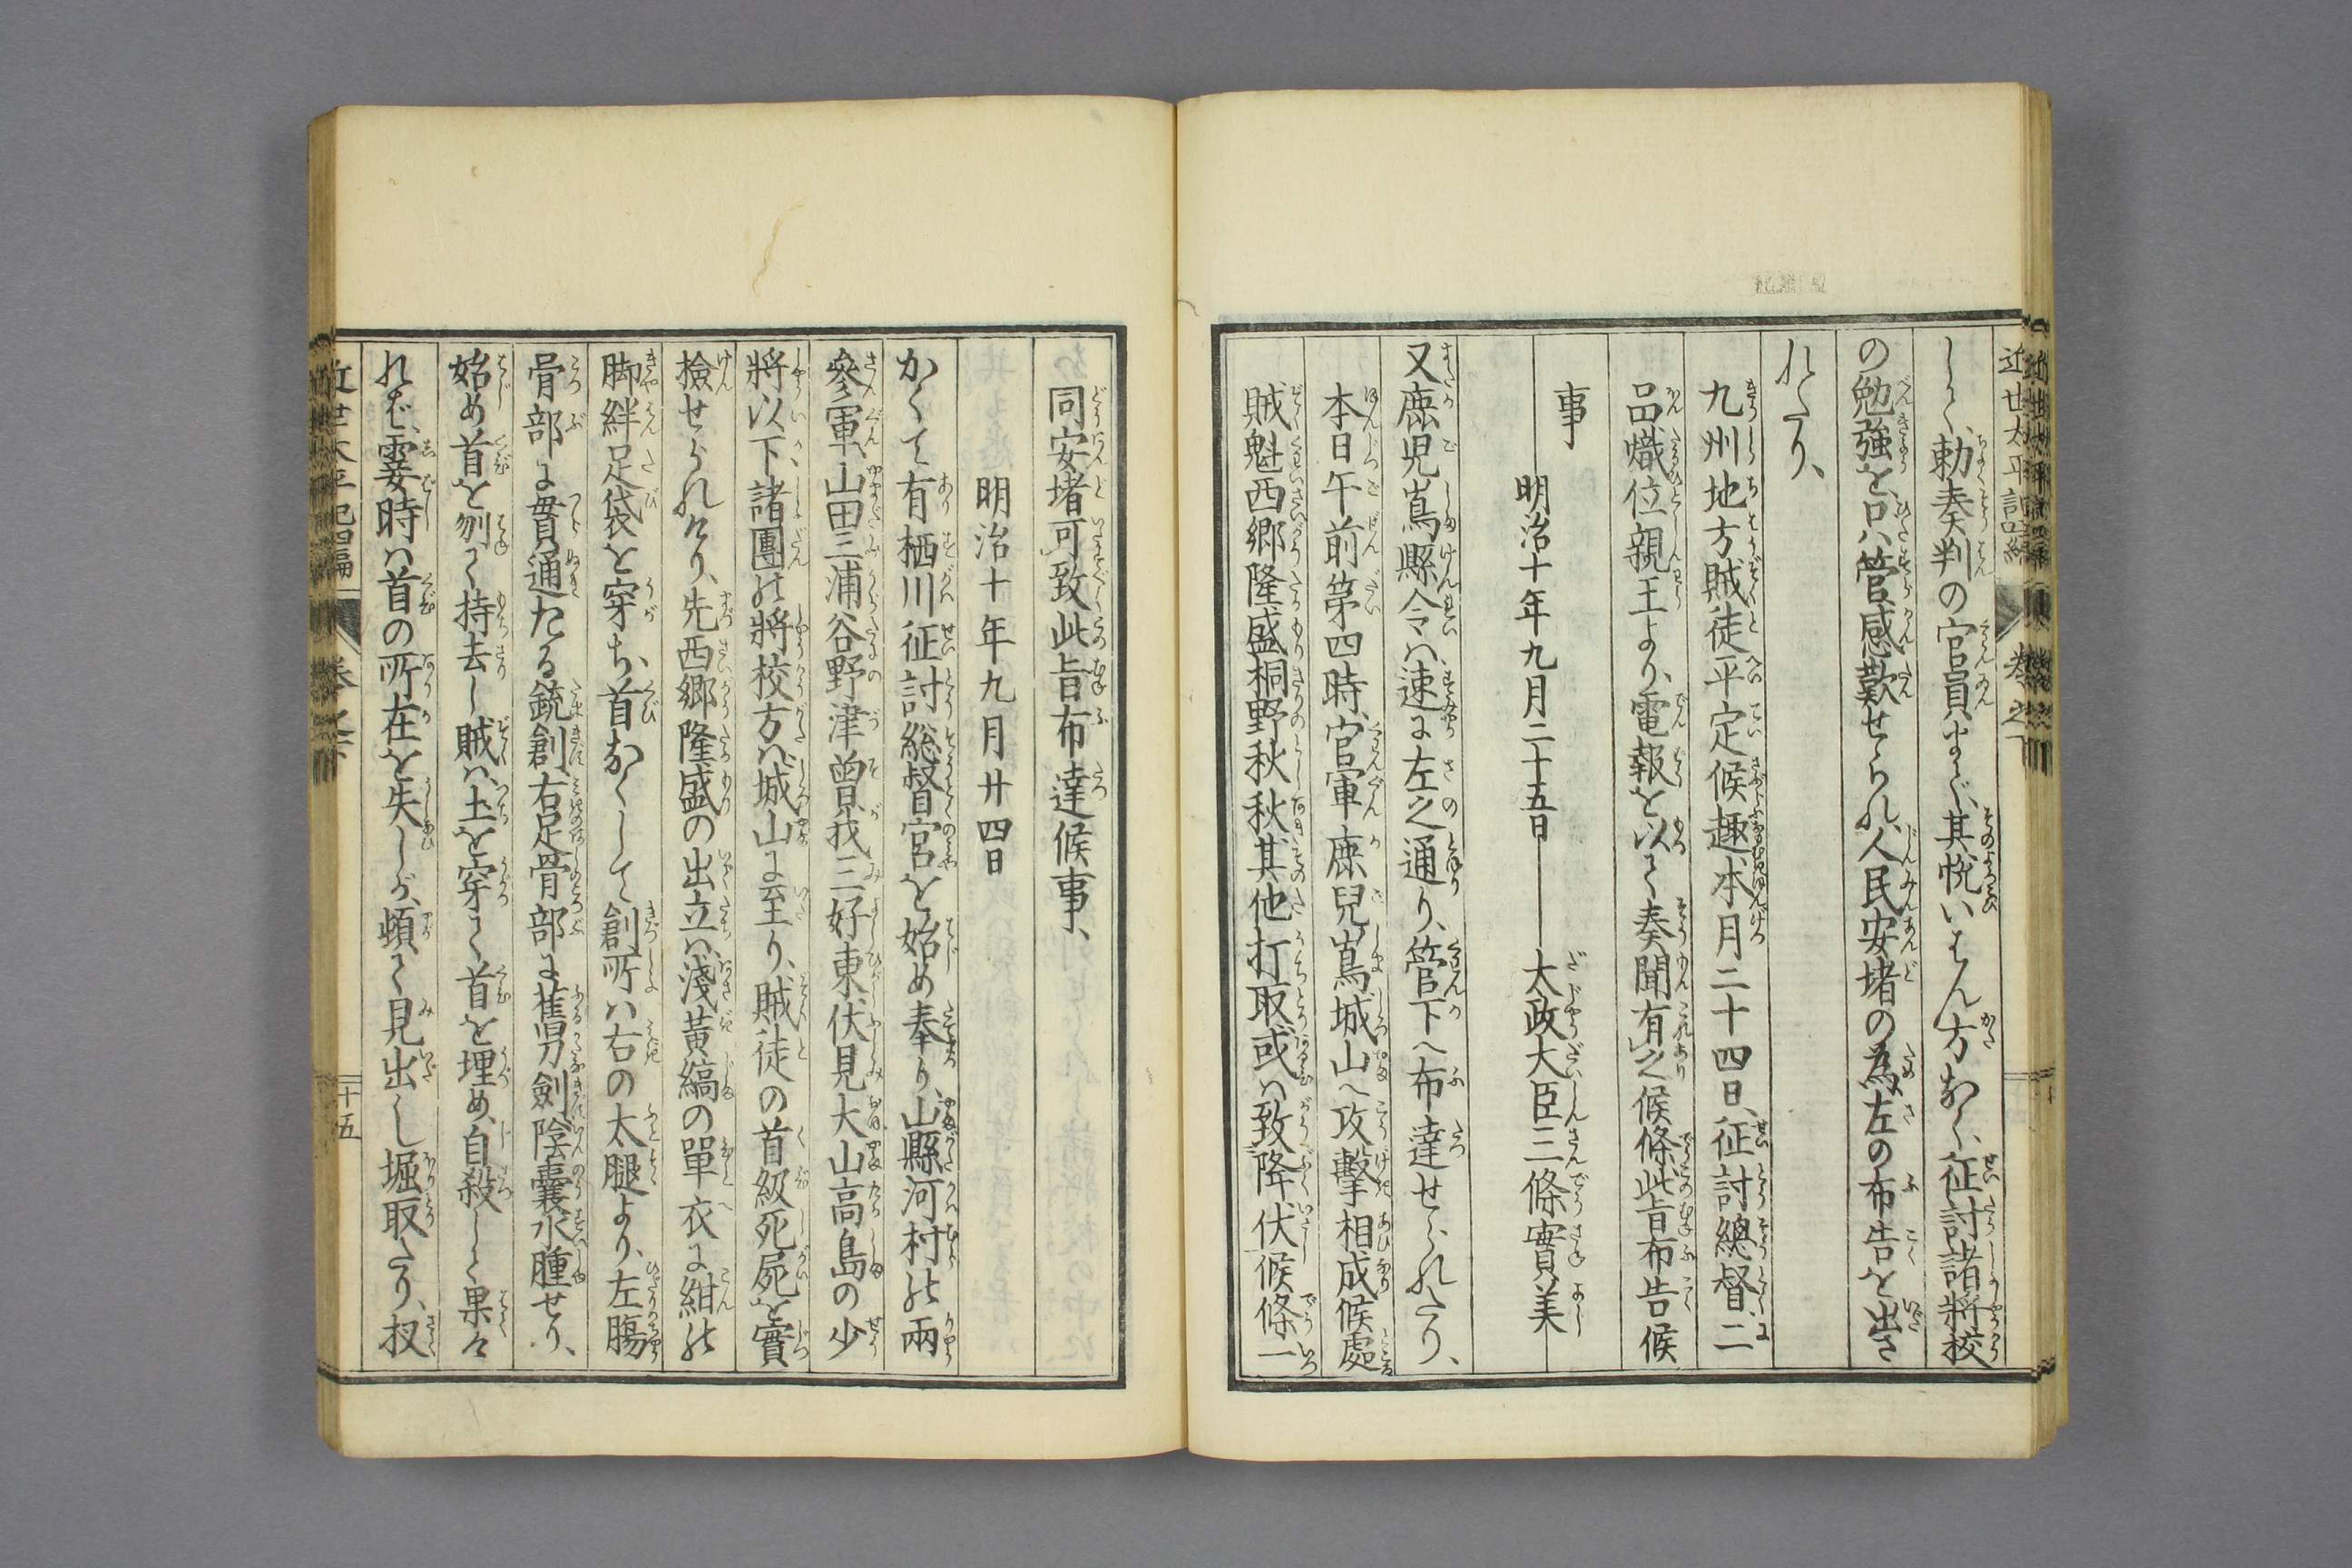 しく、勅奏判の官員まで、其悦いはん方なく、征討諸将校
の勉強を、只管感歎せられ、人民安堵の為左の布告を出さ
れたり、
九州地方賊徒平定候趣本月二十四日、征討總督二
品熾仁親王より、電報を以て奏聞有之候條此旨布告候
事
明治十年九月二十五日 太政大臣三條實美
又鹿児嶌縣令ハ速に左之通り、管下へ布達せられたり、
本日午前第四時、官軍鹿兒嶌城山へ攻撃相成候處
賊魁西郷隆盛桐野秋秋其他打取或ハ致降伏候條一
同安堵可致此旨布達候事、
明治十年九月廿四日
かくて有栖川征討総督宮を始め奉り、山縣河村の兩
參軍、山田三浦谷野津曾我三好東伏見大山高島の少
将以下、諸團の将校方ハ、城山に至り、賊徒の首級死屍を實
檢せられけり、先西郷隆盛の出立ハ、淺黄縞の單衣に紺の
脚絆足袋を穿ち、首なくして創所ハ右の太腿より、左腸
骨部に貫通たる銃創、右足骨部に舊刀劍陰囊水腫せり、
始め首を刎て持去し賊ハ、土を穿て首を埋め、自殺して果け
れバ、霎時ハ首の所在を失しが、頓て見出し堀取たり、扠
近世太平記四編
十五